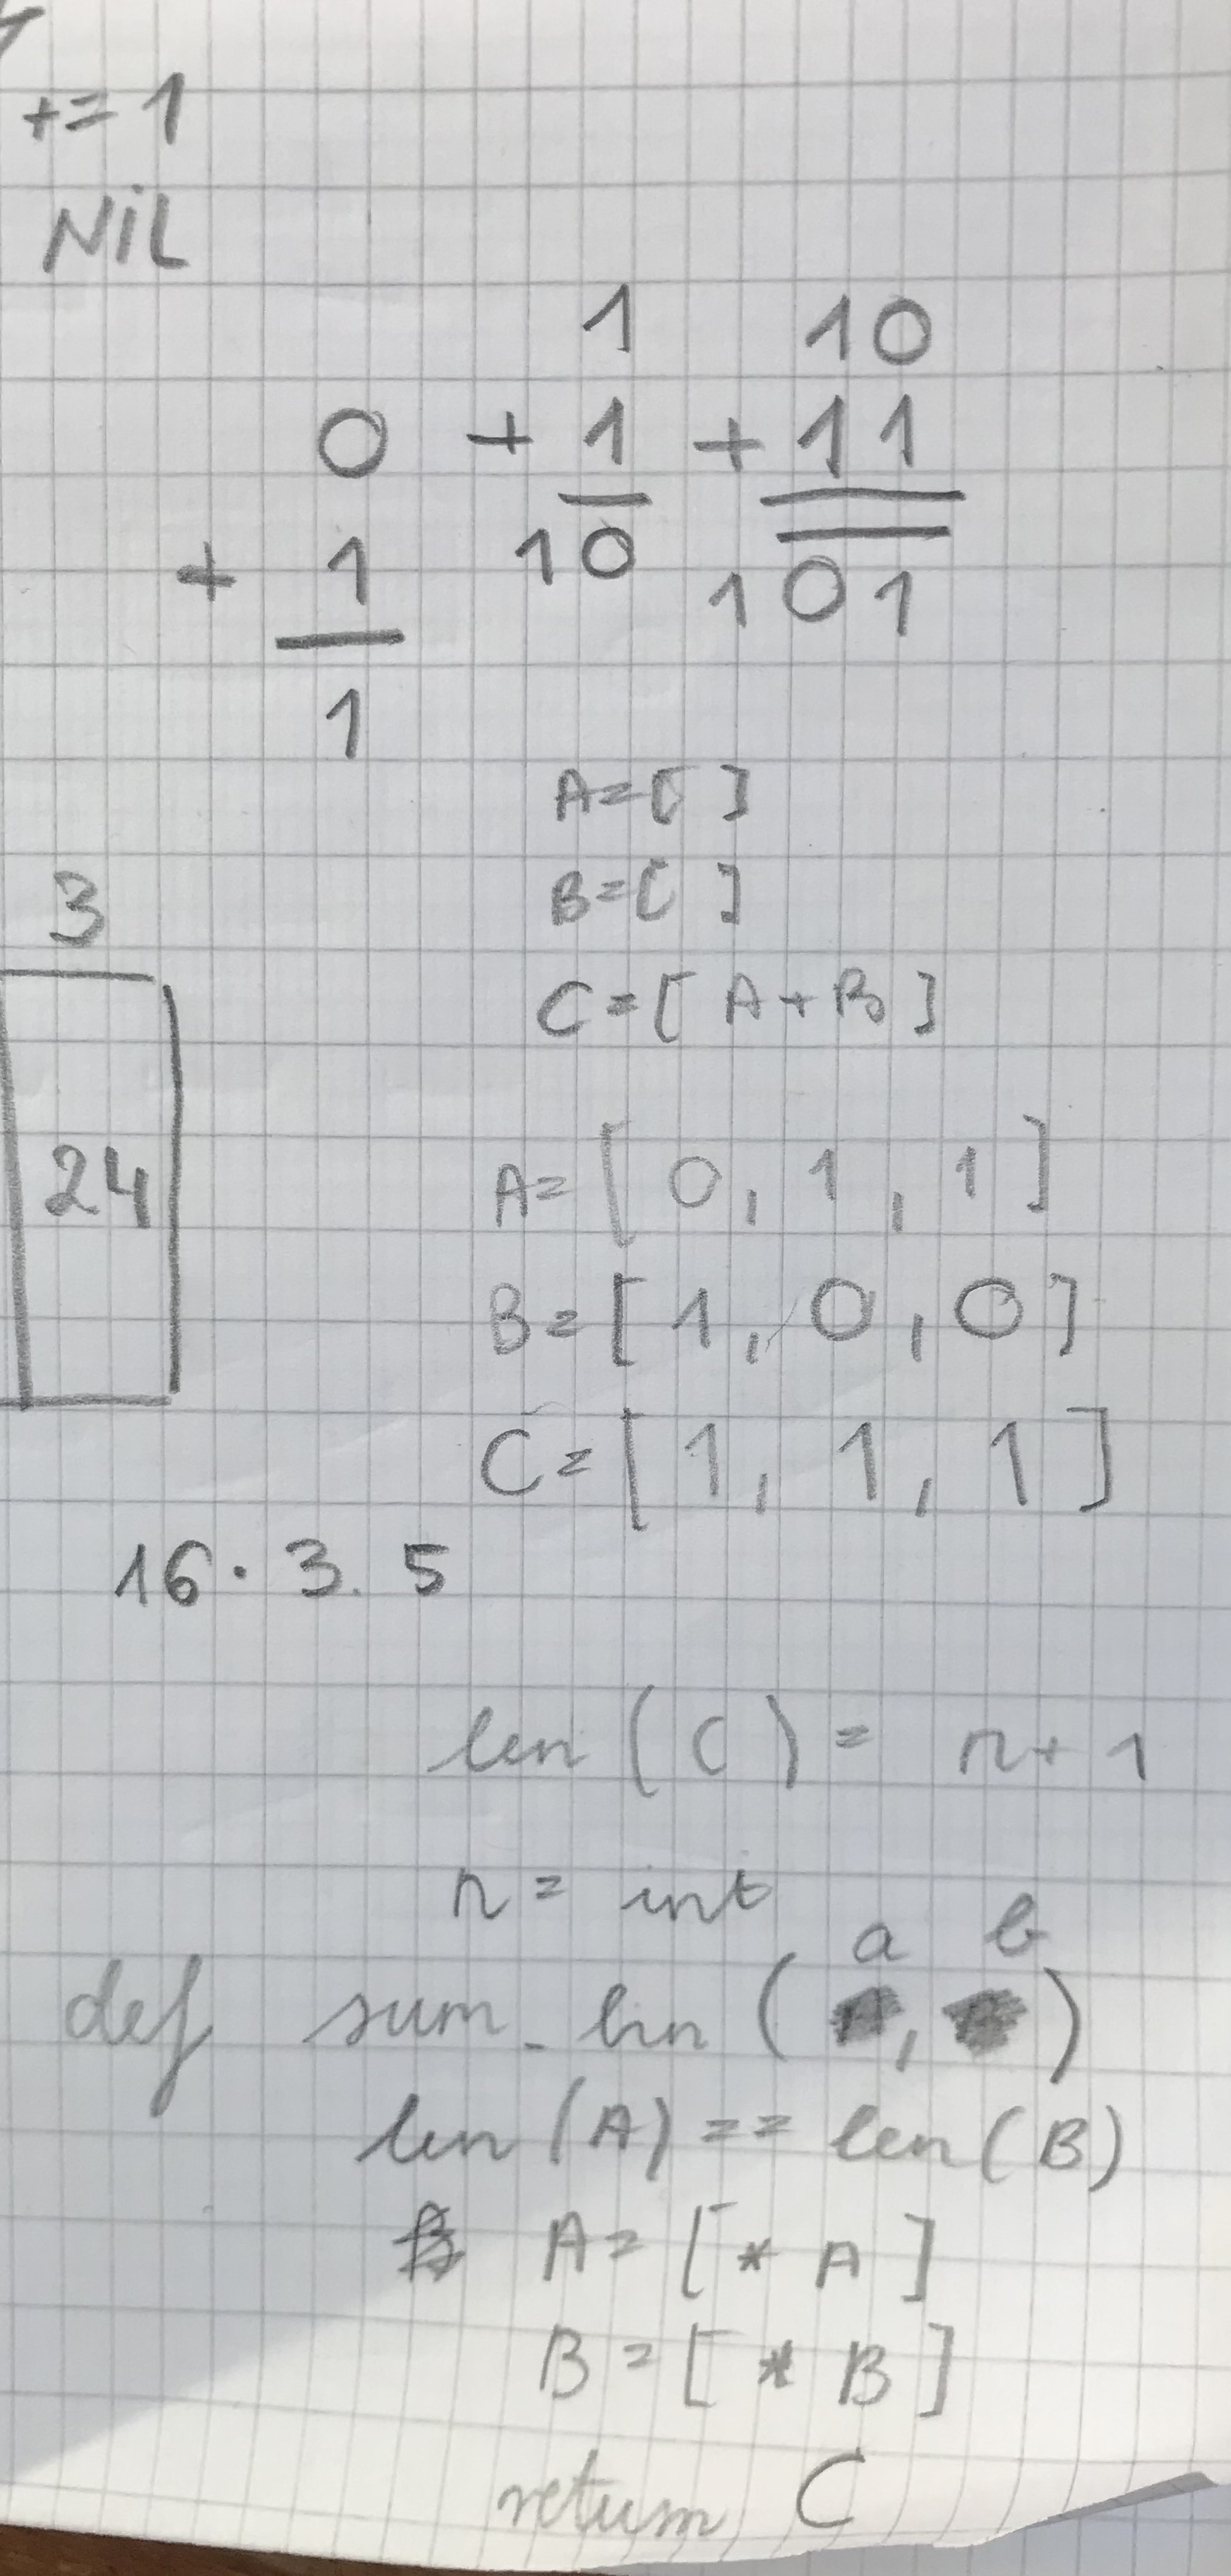 += 1
NiL
1 10
0 + 1 + 11
10
+ 1 101
1
A=[ ]
B=[ ]
3
C=[ A+B ]
24
A= [ 0, 1, 1 ]
B= [ 1, 0, 0 ]
C= [ 1, 1, 1 ]
16. 3. 5
len (C) = n+1
n= int
a b
def sum_bin ( , )
len (A) == len (B)
A= [ * A ]
B= [ * B ]
return C